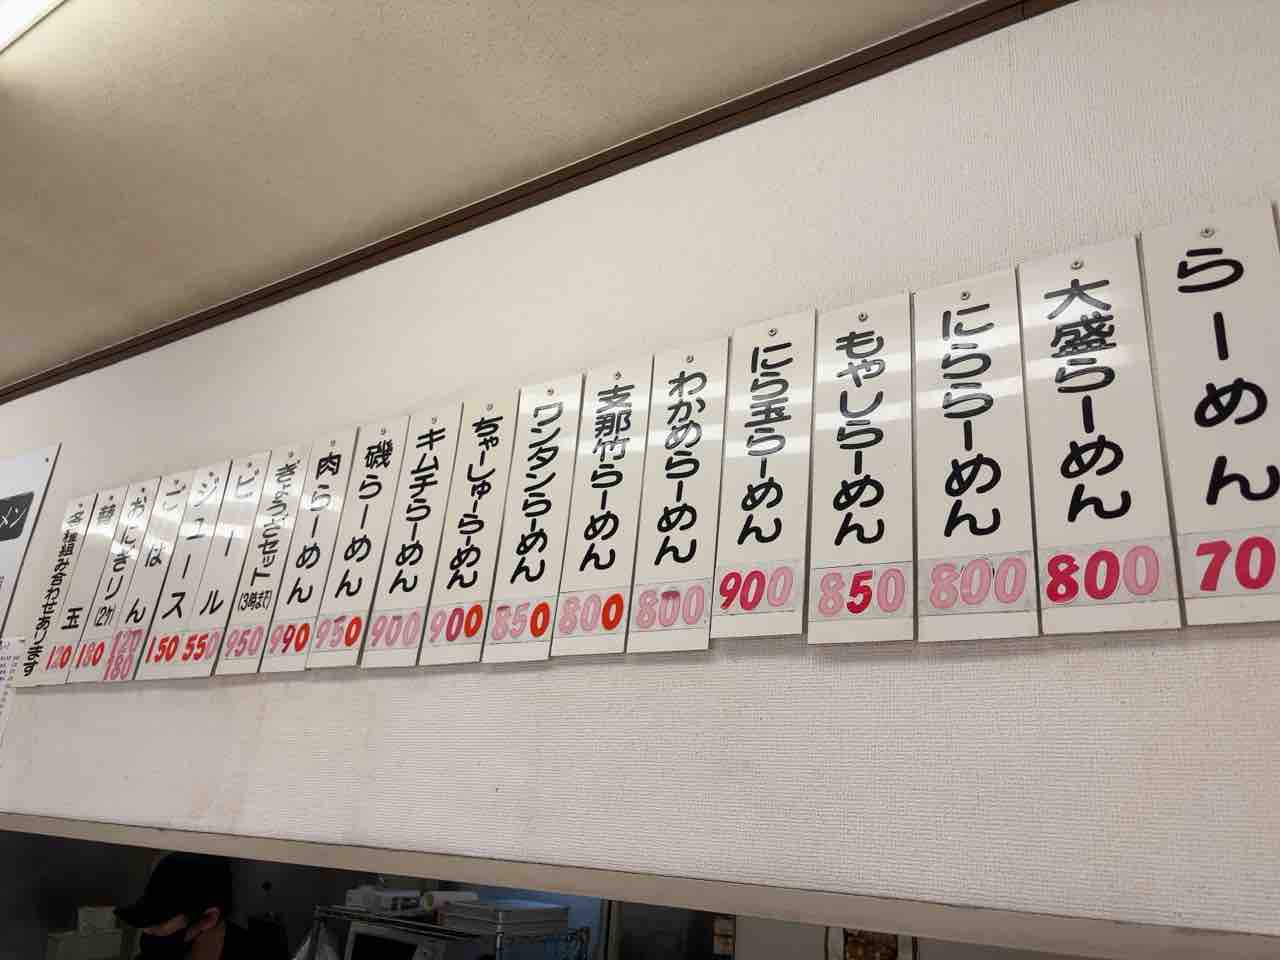 らーめん
70
大盛らーめん
800
にららーめん
800
もやしらーめん
850
にら玉らーめん
900
わかめらーめん
800
支那竹らーめん
800
ワンタンらーめん
850
ちゃーしゅーらーめん
900
キムチらーめん
900
磯らーめん
950
肉らーめん
990
ぎょうざセット(3時まで)
950
ビール
550
ジュース
150
ごはん
120
180
おにぎり(2ケ)
180
替玉
120
各種組み合わせあります
メン